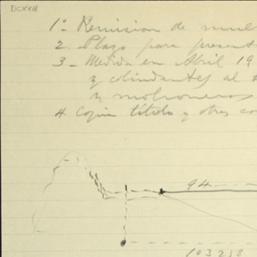 DCXXIII
1º Remision de
2. Plazo para present
3_ Medida en Abril 19
y colindantes al
y mohoneros
4. Copia titulo y otros co
94
103218